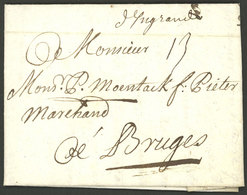 d'Ingrande
A Monsieur 13
Mons. P. Moentack f. Pieter
Marchand
à Bruges